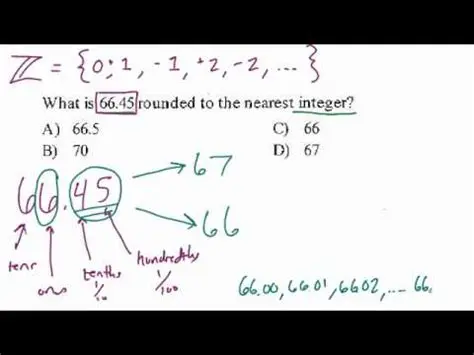 ℤ = {0, 1, -1, +2, -2, ...}
What is 66.45 rounded to the nearest integer?
A) 66.5
C) 66
B) 70
D) 67
66.45
67
66
tens
ones
tenths
1/10
hundredths
1/100
66.00, 66.01, 66.02, .... 66.